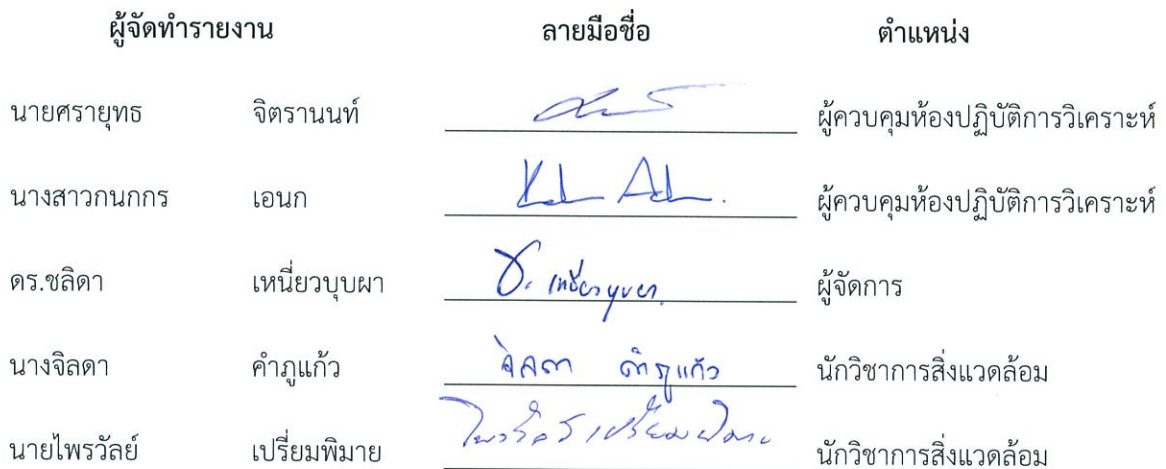 ผู้จัดทำรายงาน ลายมือชื่อ ตำแหน่ง
นายศรายุทธ จิตรานนท์ ผู้ควบคุมห้องปฏิบัติการวิเคราะห์
นางสาวกนกกร เอนก ผู้ควบคุมห้องปฏิบัติการวิเคราะห์
ดร.ชลิดา เหนี่ยวบุบผา ช. เหนี่ยวบุบผา ผู้จัดการ
นางจิลดา คำภูแก้ว จิลดา คำภูแก้ว นักวิชาการสิ่งแวดล้อม
นายไพรวัลย์ เปรี่ยมพิมาย ไพรวัลย์ เปรี่ยมพิมาย นักวิชาการสิ่งแวดล้อม